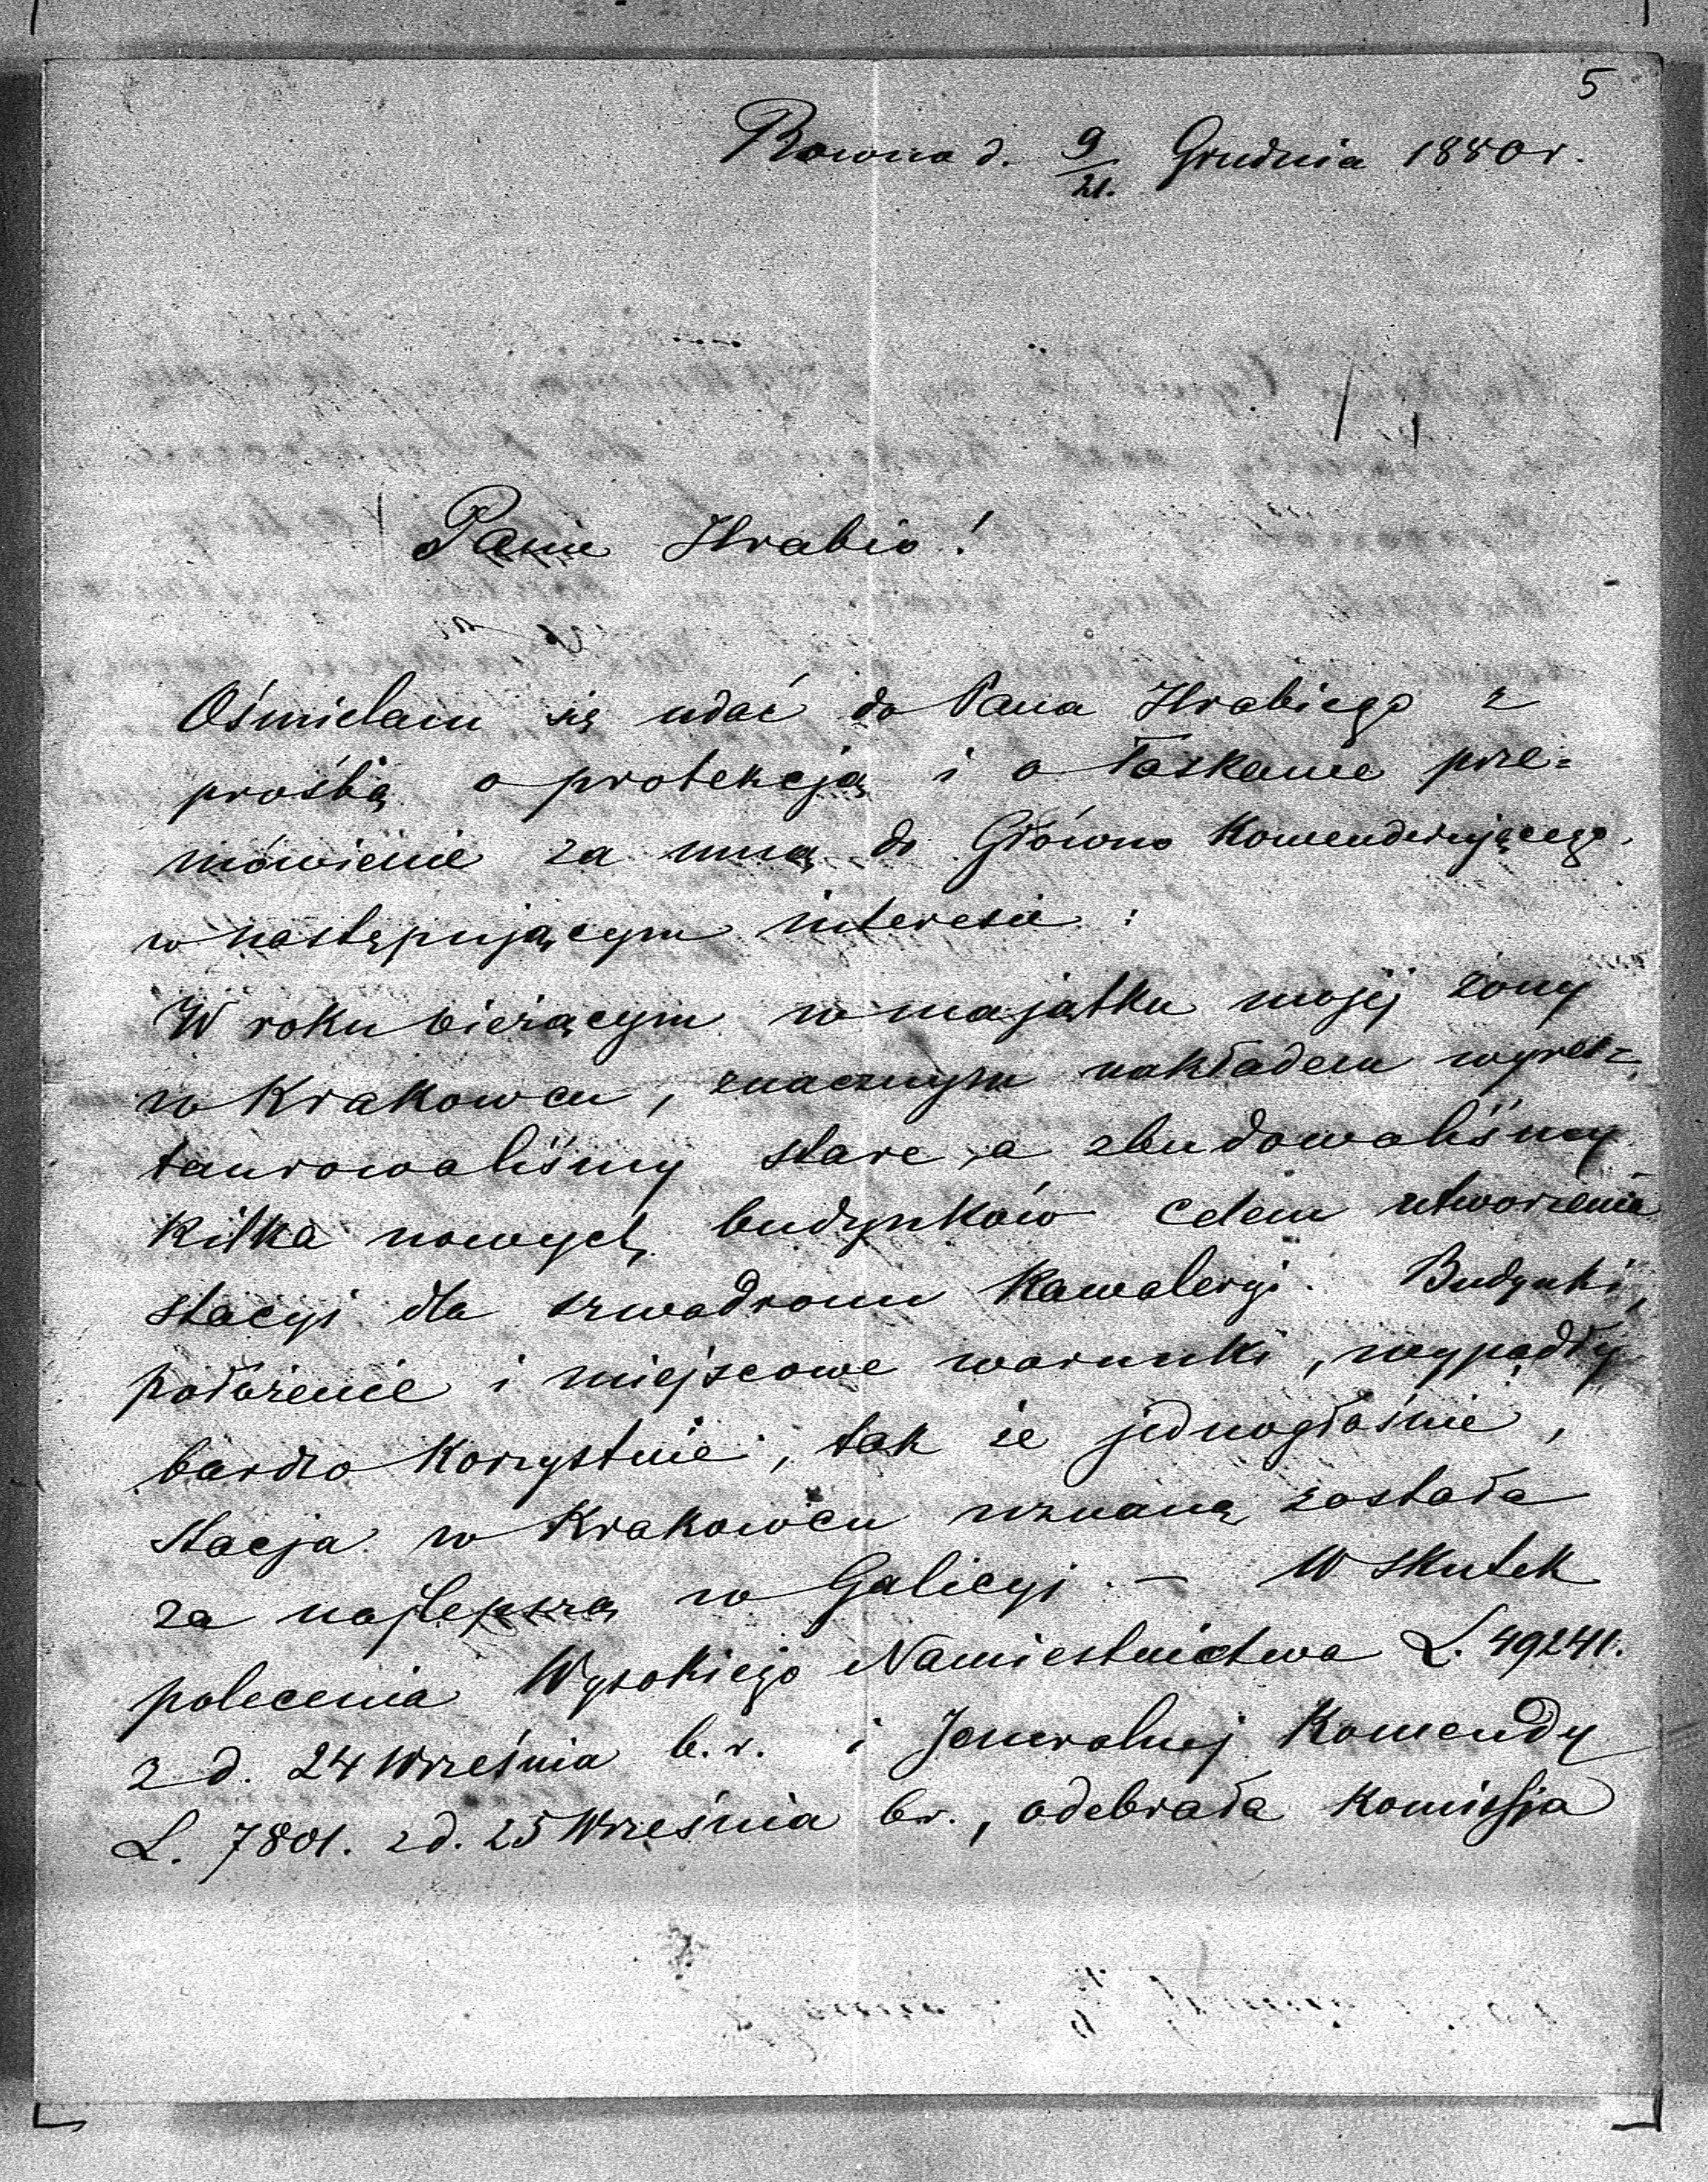 5
Rowno d. 9/21. Grudnia 1880 r.
Panie Hrabio!
Ośmielam się udać do Pana Hrabiego z
prośbą o protekcją i o łaskawe prze=
mówienie za mną do Główno Komenderującego
w następującym interesie:
W roku bieżącym w majątku mojej żony
w Krakowcu, znacznym nakładem wyres=
taurowaliśmy stare a zbudowaliśmy
kilka nowych budynków celem utworzenia
stacyi dla szwadronu Kawaleryi. Budynki,
położenie i miejscowe warunki, wypadły
bardzo Korzystnie, tak że jednogłośnie,
stacja w Krakowcu uznaną została
za najlepszą w Galicyi. – W skutek
polecenia Wysokiego Namiestnictwa L. 49241.
z d. 24 Września b. r. i Jeneralnej Komendy
L. 7801. z d. 25 Września br., odebrała Komissja